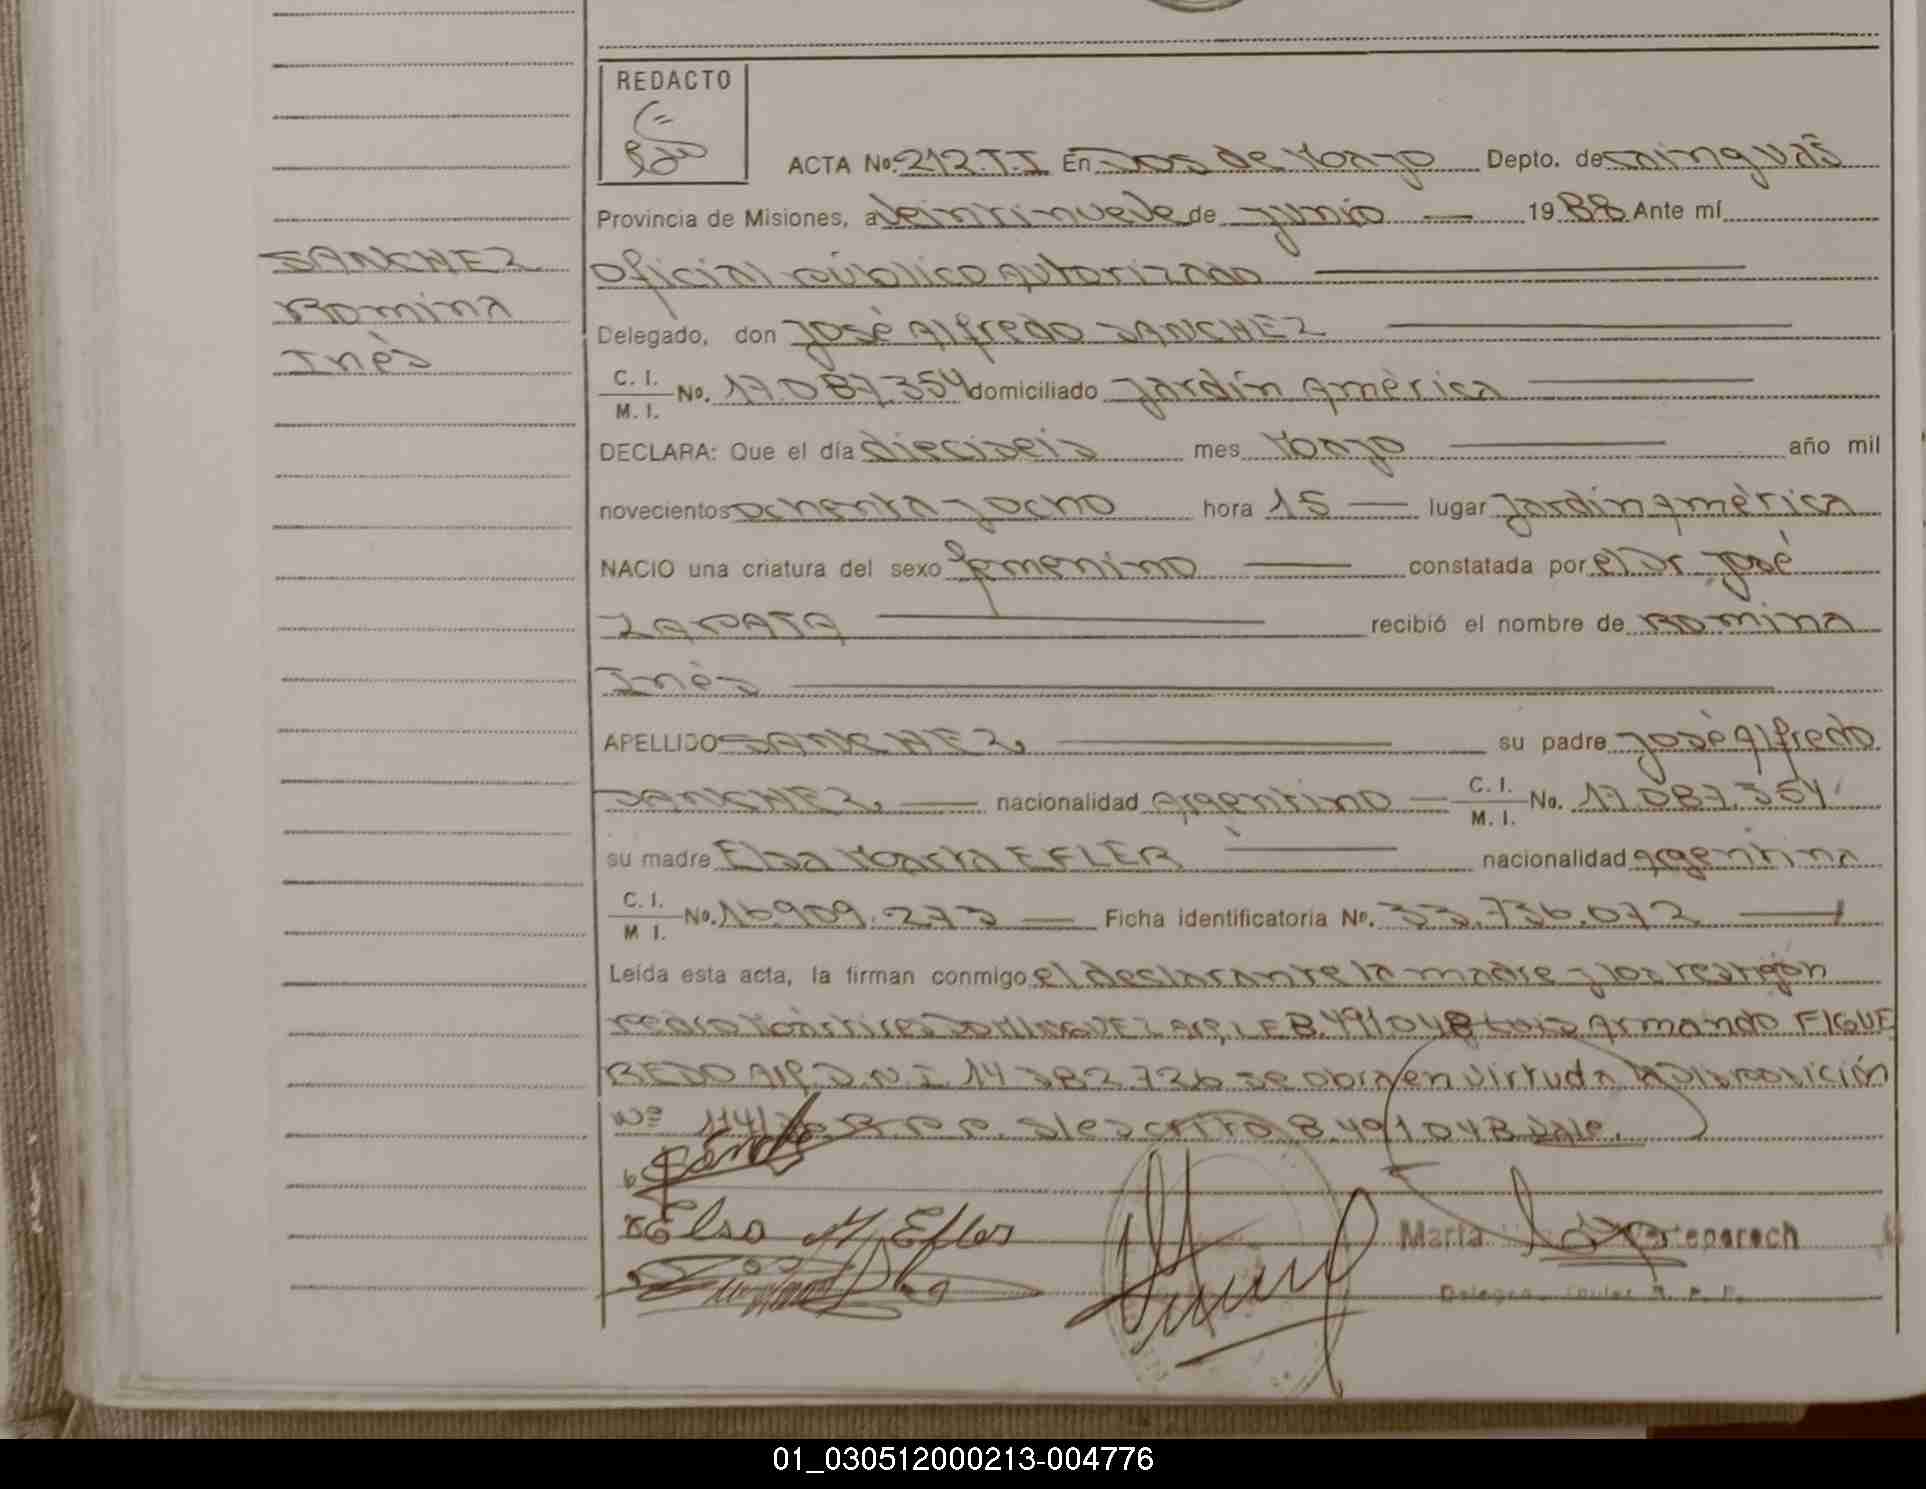 REDACTO
ACTA No. 212.T.I En Dos de Mayo Depto. de Cainguas
Provincia de Misiones, a veintinueve de junio 1988 Ante mí
SANCHEZ
Romina
Inés
Oficial público autorizado
Delegado, don José Alfredo SANCHEZ
C. I.
M. I. No. 17.087.354 domiciliado Jardín América
DECLARA: Que el día dieciseis mes Mayo año mil
novecientos ochenta y ocho hora 15 lugar Jardín América
NACIO una criatura del sexo femenino constatada por el Dr José
ZAPATA recibió el nombre de Romina
Inés
APELLIDO SANCHEZ su padre José Alfredo
SANCHEZ nacionalidad Argentino C. I.
M. I. No. 17.087.354
su madre Elsa María EFLER nacionalidad Argentina
C. I.
M I. No. 16909.273 Ficha identificatoria No. 33.736.072
Leída esta acta, la firman conmigo el declarante la madre y los testigos
Armando FIGUE
REDO Arg. D.N.I. 14 382 726 se obra en virtud a la Disposición
Nº S/escrito 8.491048 Vale.
Elsa M. Efler
María
01_030512000213-004776